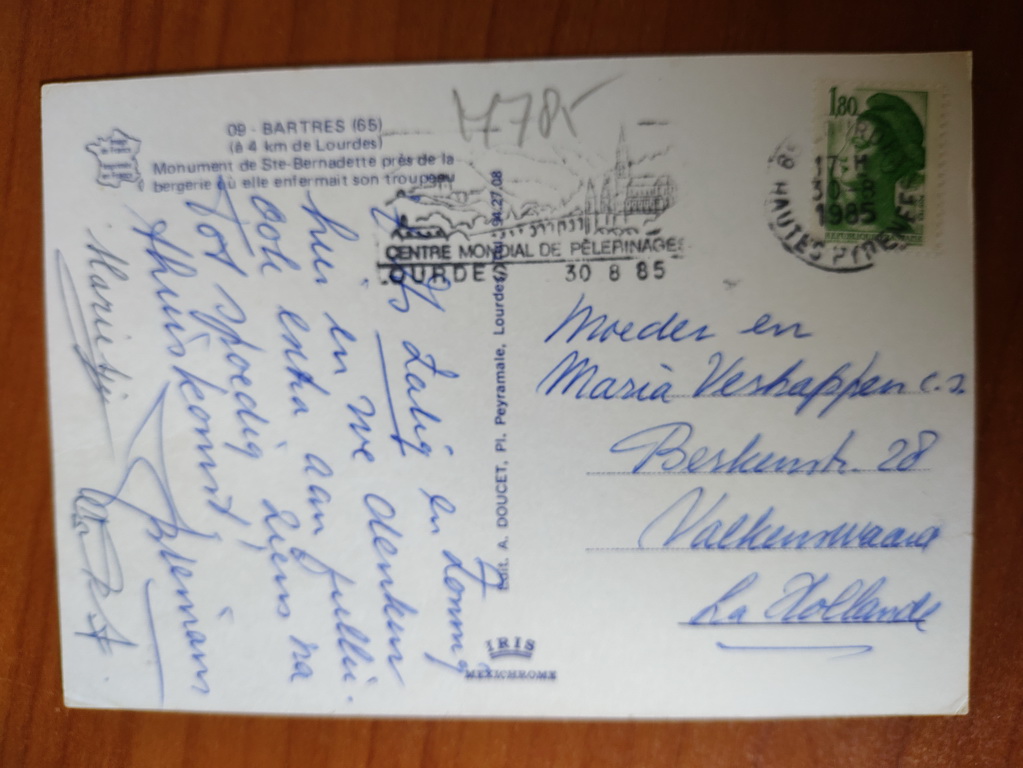 1785
09 - BARTRES (65)
(à 4 km de Lourdes)
Monument de Ste-Bernadette près de la
bergerie où elle enfermait son troupeau
1,80
17-H
1985
HAUTES PYRENEES
CENTRE MONDIAL DE PÈLERINAGES
LOURDES 30 8 85
is zalig en zonnig
hier en we denken
ook extra aan jullie.
Tot spoedig ziens na
thuiskomst,
Marietje
Bleniam
Edit. A. DOUCET, Pl. Peyramale, Lourdes 94.27.08
IRIS
MEXICHROME
Moeder en
Maria Verkappen c.s.
Berkenstr. 28
Valkenswaard
La Hollande